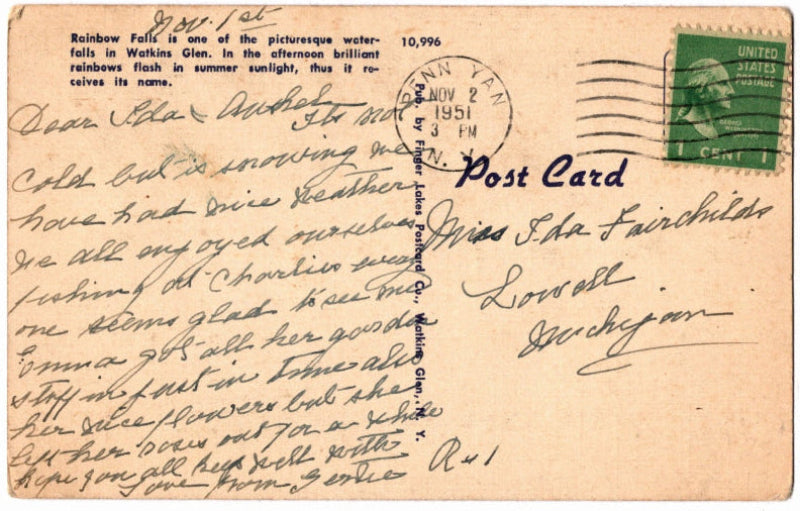 Nov. 1st
Rainbow Falls is one of the picturesque water-
falls in Watkins Glen. In the afternoon brilliant
rainbows flash in summer sunlight, thus it re-
ceives its name.
10,996
Dear Ida &
Its not
cold but is snowing we
have had nice weather
we all enjoyed ourselves
fishing at Charlies every
one seems glad to see me
Emma got all her garden
stuff in just in time also
her nice flowers but she
left her roses out for a while
hope you all keep well with
Love from Gertie
Pub. by Finger Lakes Postcard Co., Watkins Glen, N. Y.
PENN YAN
NOV 2
1951
3 PM
N. Y.
UNITED
STATES
POSTAGE
GEORGE
WASHINGTON
1 CENT 1
Post Card
Miss Ida Fairchilds
Lowell
Michigan
R#1